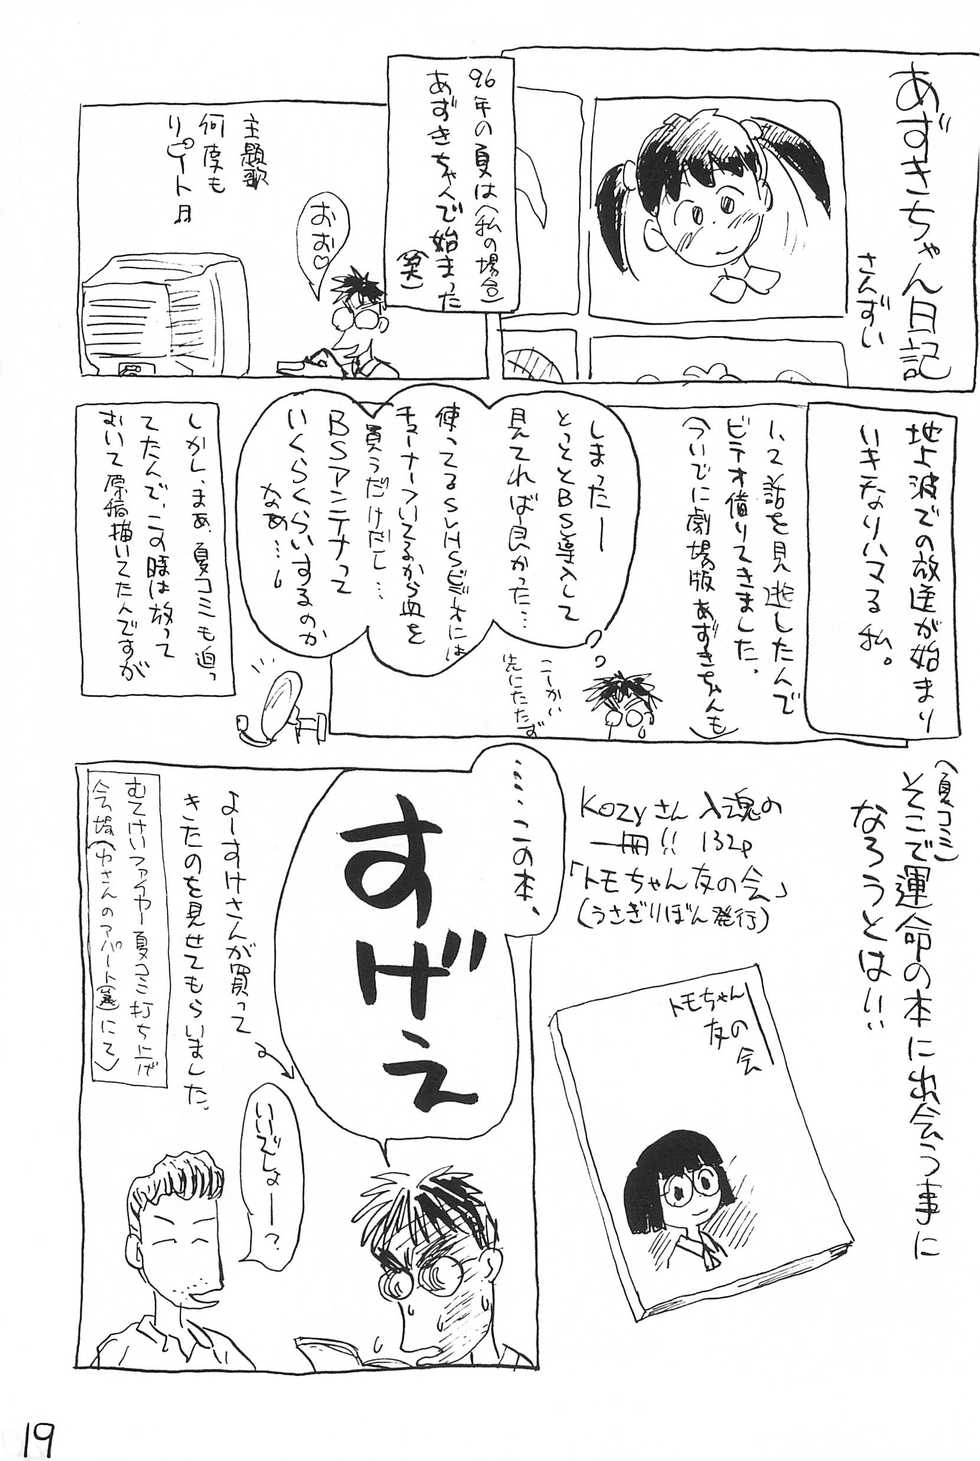 あずきちゃん日記
さんずい
96年の夏は(私の場合)
あずきちゃんで始まった
(笑)
主題歌
何度も
リピート♬
おお♡
地上波での放送が始まり
いキナリハマる私。
1、2話を見逃したんで
ビデオ借りてきました。
ついでに劇場版あずきちゃんも)
しまったー
とっととBS導入して
見てれば良かった…
使ってるSVHSビデオには
チューナーついてるから皿を
買うだけだし…
BSアンテナって
いくらくらいするのか
なぁ…
こーかい
先にたたず
しかし、まぁ、夏コミも迫っ
てたんで、この時は放って
おいて原稿描いてたんですが
(夏コミ)
そこで運命の本に出会う事に
なろうとは!!
Kozyさん入魂の
一冊!! 132p
「トモちゃん友の会」
(うさぎりぼん発行)
トモちゃん
友の会
……この本、
すげぇ
よーすけさんが買って
きたのを見せてもらいました。
むてけいファイヤー夏コミ打ち上げ
会場(やさんのアパート(笑)にて)
いいでしょー?
19